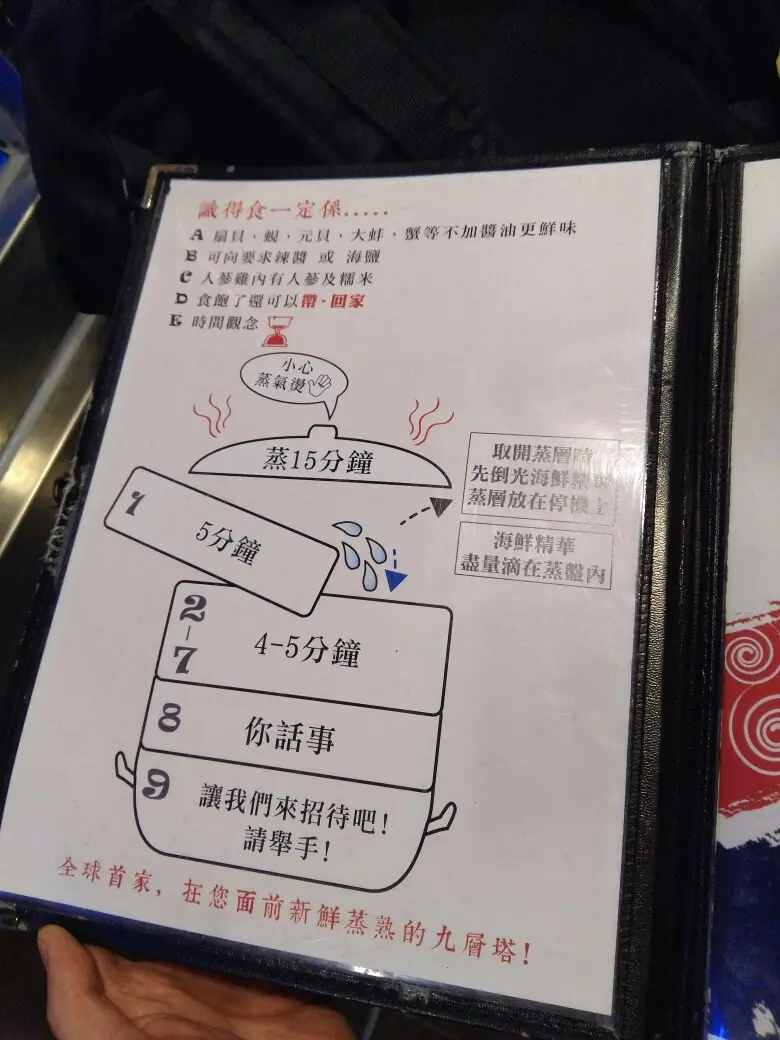 識得食一定係.....
A 扇貝，蜆，元貝，大蚌，蟹等不加醬油更鮮味
B 可向要求辣醬 或 海鹽
C 人蔘雞內有人蔘及糯米
D 食飽了還可以帶·回家
E 時間觀念
小心
蒸氣燙
蒸15分鐘
取開蒸層時
先倒光海鮮
蒸層放在停機上
1 5分鐘
海鮮精華
盡量滴在蒸盤內
2-7 4-5分鐘
8 你話事
9 讓我們來招待吧!
請舉手!
全球首家，在您面前新鮮蒸熟的九層塔!